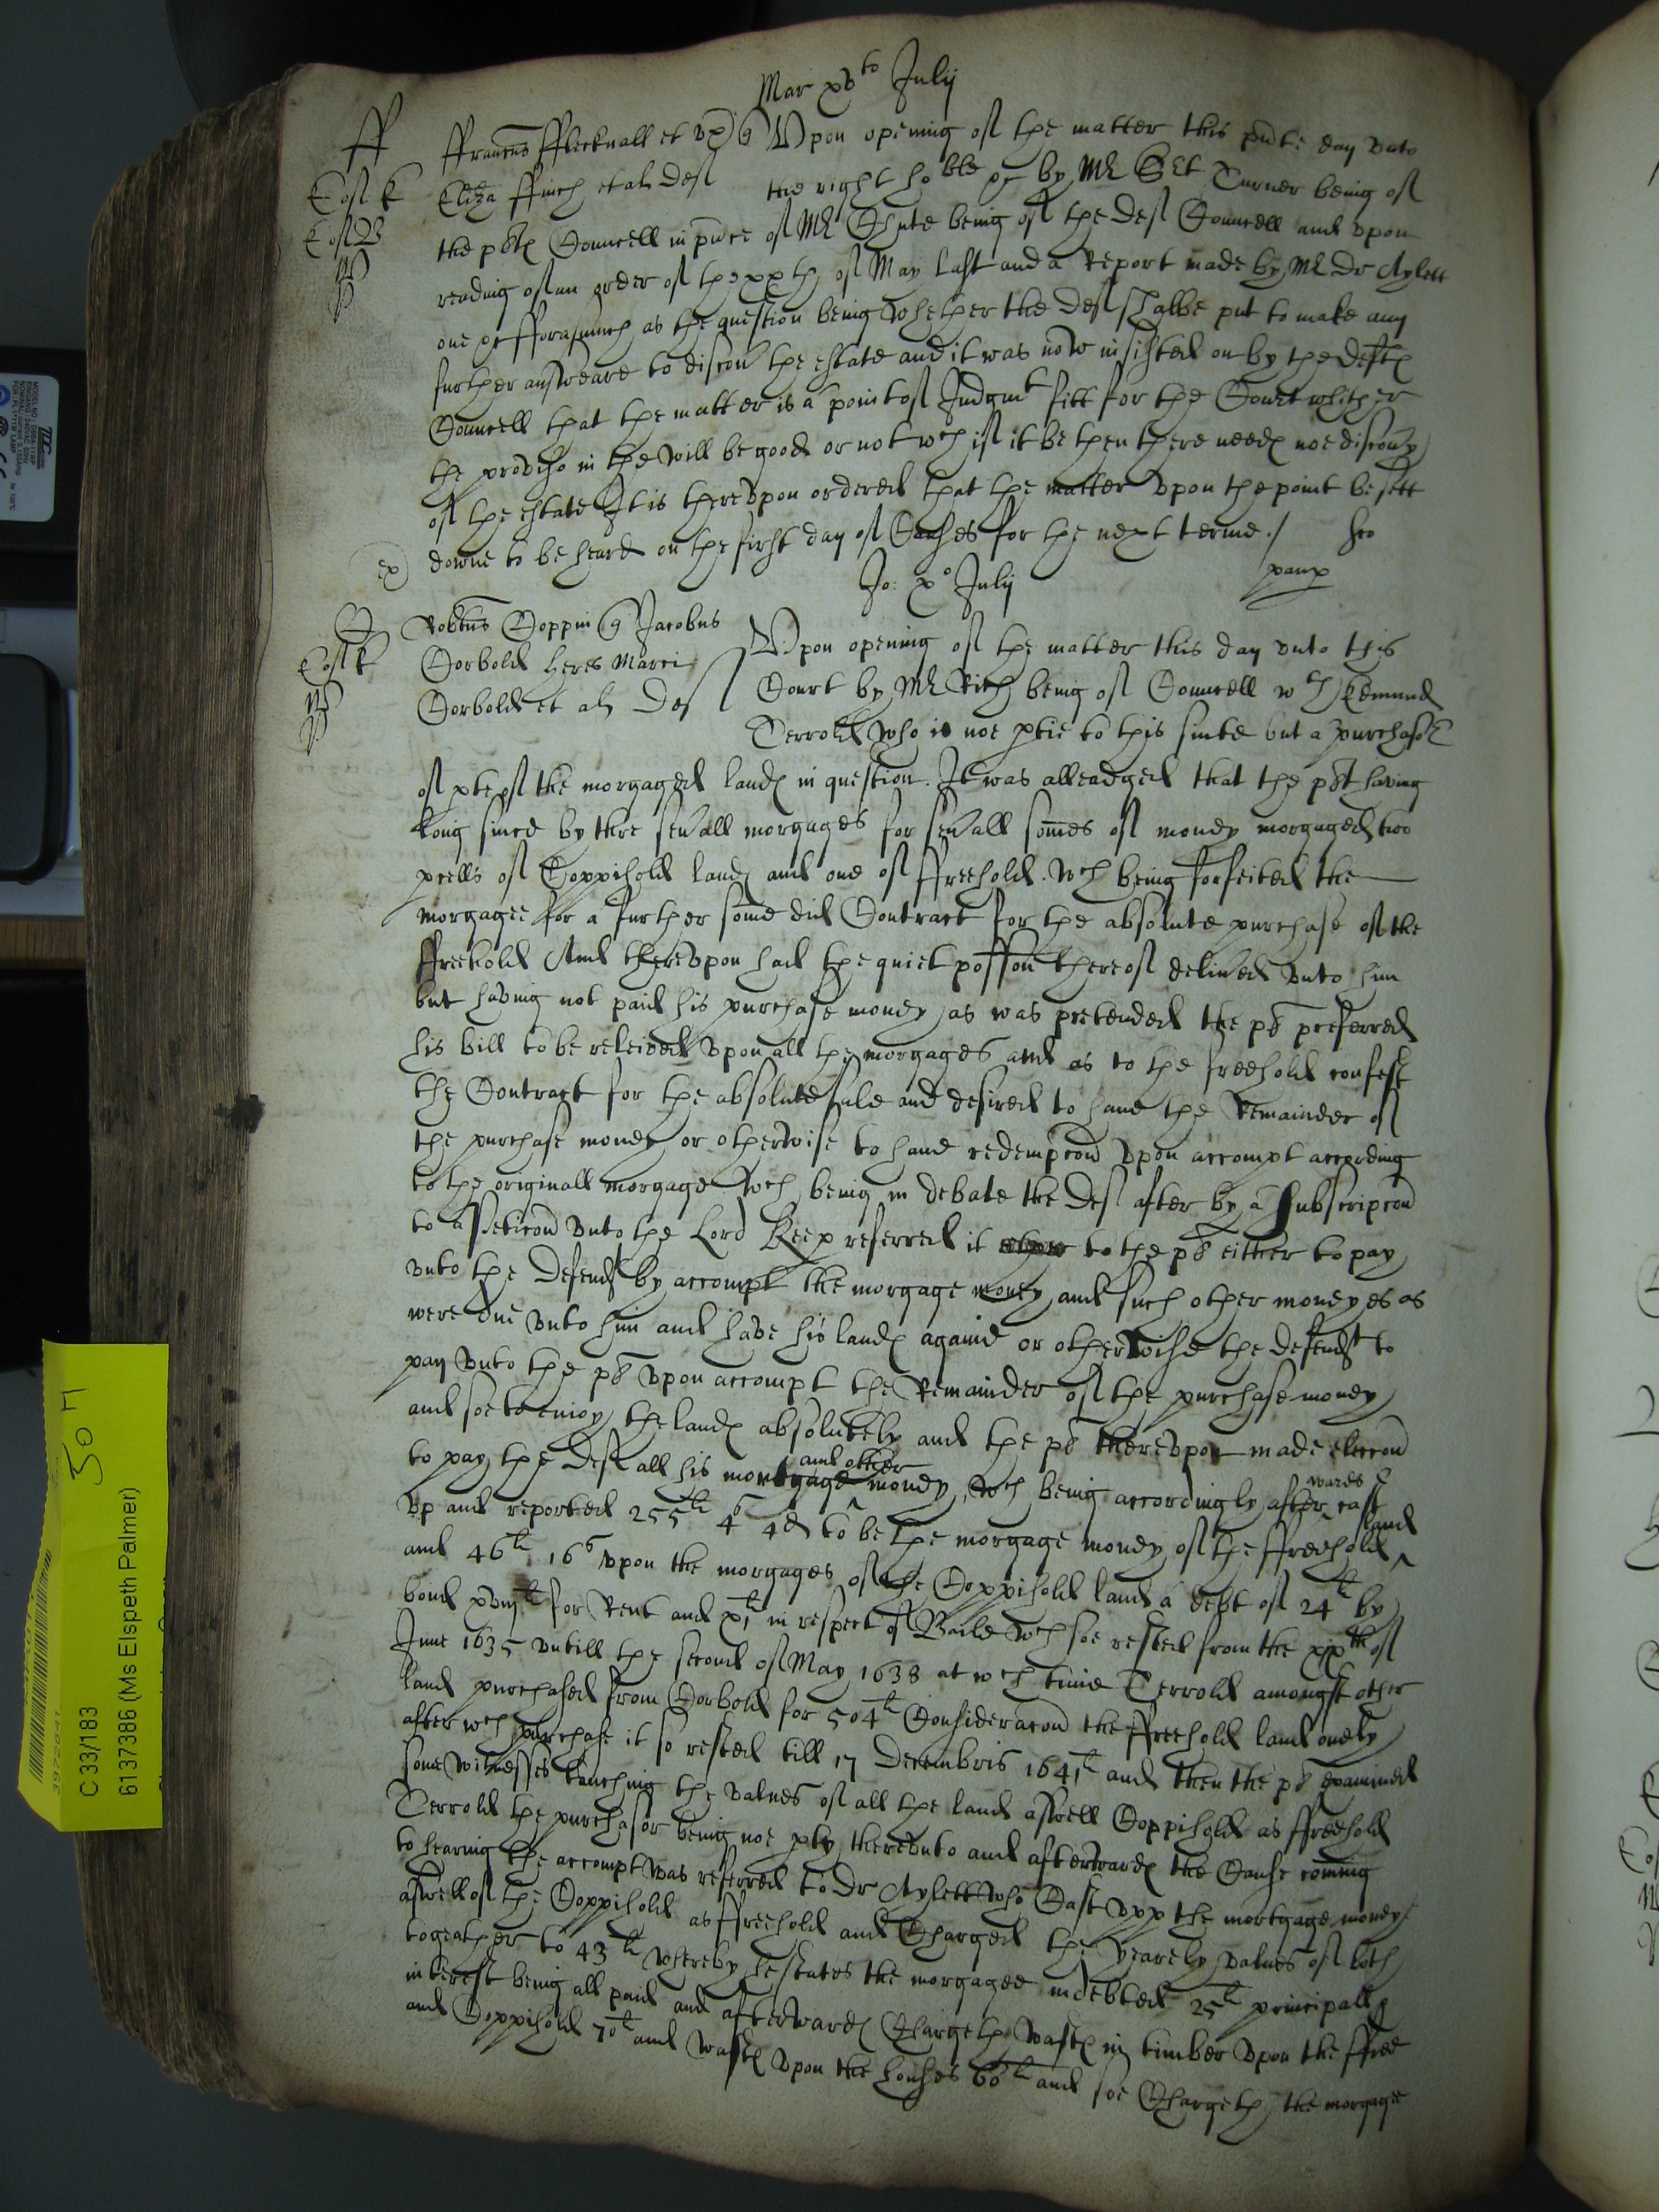 Mar xvto Julij
ff
ffrancus fflecknall et vx qr Upon opening of the matter this pnte day unto
Eliza ffinch et als Def the right hoble &c by Mr Sgt Turner being of
the plts Councell in pnce of Mr Chute being of the Def Councell and upon
reading of an order of the xxth of May last and a Report made by Mr Dr Aylett
one &c fforasmuch as the question being whether the Def shalbe put to make any
further answeare to discou the estate and it was now insisted on by the Defts
Councell that the matter is a point of Judgmt fitt for the Court whither
the proviso in the will be good or not wch if it be then there needs noe discouy
of the estate It is thereupon ordered that the matter upon the point be sett
downe to be heard on the first day of Causes for the next terme ./
ex
Jo: xo Julij
paup
C
Robtus Coppin qr Jacobus
Corbold heres Marci
Corbold et als Def
Upon opening of the matter this day unto this
Court by Mr Rich being of Councell wth Edmund
Terrold who is noe ptie to this suite but a purchasor
of pte of the morgaged lands in question. It was alleadged that the plt having
long since by thre seuall morgages for seuall somes of money morgaged two
pcells of Coppihold lands and one of ffreehold. wch being forfeited the
morgagee for a further some did Contract for the absolute purchase of the
ffreehold And thereupon had the quiet possion thereof delived unto him
but having not paid his purchase money as was pretended the pl preferred
his bill to be releived upon all the morgages and as to the freehold confest
the Contract for the absolute sale and desired to have the Remainder of
the purchase money or otherwise to have redempcon upon accompt according
to the originall morgage. wch being in debate the Def after by a subscripcon
to a peticon unto the Lord Keep referred it to the pl either to pay
unto the Defendt by accompt the morgage money and such other moneyes as
were due unto him and have his lands againe or otherwise the defendt to
pay unto the pl upon accompt the Remainder of the purchase money
and soe to enioy the lands absolutely and the pl thereupon made eleccon
to pay the Def all his mortgage and other money, wch being accordingly afterwards cast
up and reported 255li 4s 4d to be the morgage money of the ffreehold land
and 46li 16s upon the morgages of the Coppihold land a debt of 24li by
bond xviijli for Rent and xjli in respect of Baile wch soe rested from the xixth of
June 1635 untill the second of May 1638 at wch time Terrold amongst other
land purchased from Corbold for 504li Consideracon the ffreehold land onely
after wch purchase it so rested till 17 Decembris 1641 and then the pl examined
some witnesses touching the values of all the land aswell Coppihold as ffreehold
Terrold the purchasor being noe pty thereunto and afterwards the Cause coming
to hearing the accompt was referred to Dr Aylett who Cast upp the mortgage money
aswell of the Coppihold as ffreehold and Charged the yearely values of both
togeather to 43li whereby he states the morgagee indebted 25li principall &
interest being all paid and afterwards Chargeth wasts in timber upon the ffree
and Coppihold 70li and wasts upon the houses 60li and soe Chargeth the morgage
50 M
C 33/183
6137386 (Ms Elspeth Palmer)